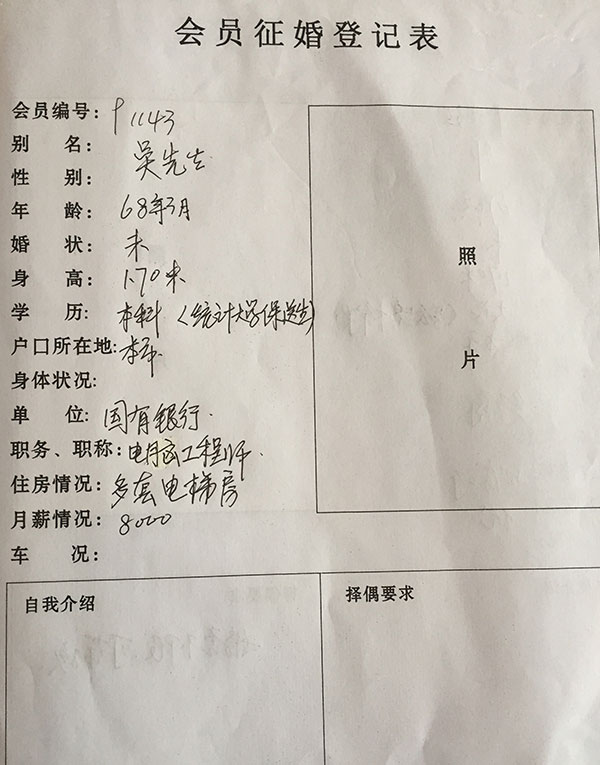 会员征婚登记表
会员编号: P1143
别 名: 吴先生
性 别:
年 龄: 68年3月
婚 状: 未
身 高: 1.70米
学 历: 本科(统计大学保送生)
户口所在地: 本市
身体状况:
单 位: 国有银行.
职务、职称: 电脑工程师.
住房情况: 多套电梯房
月薪情况: 8000
车 况:
照
片
自我介绍
择偶要求